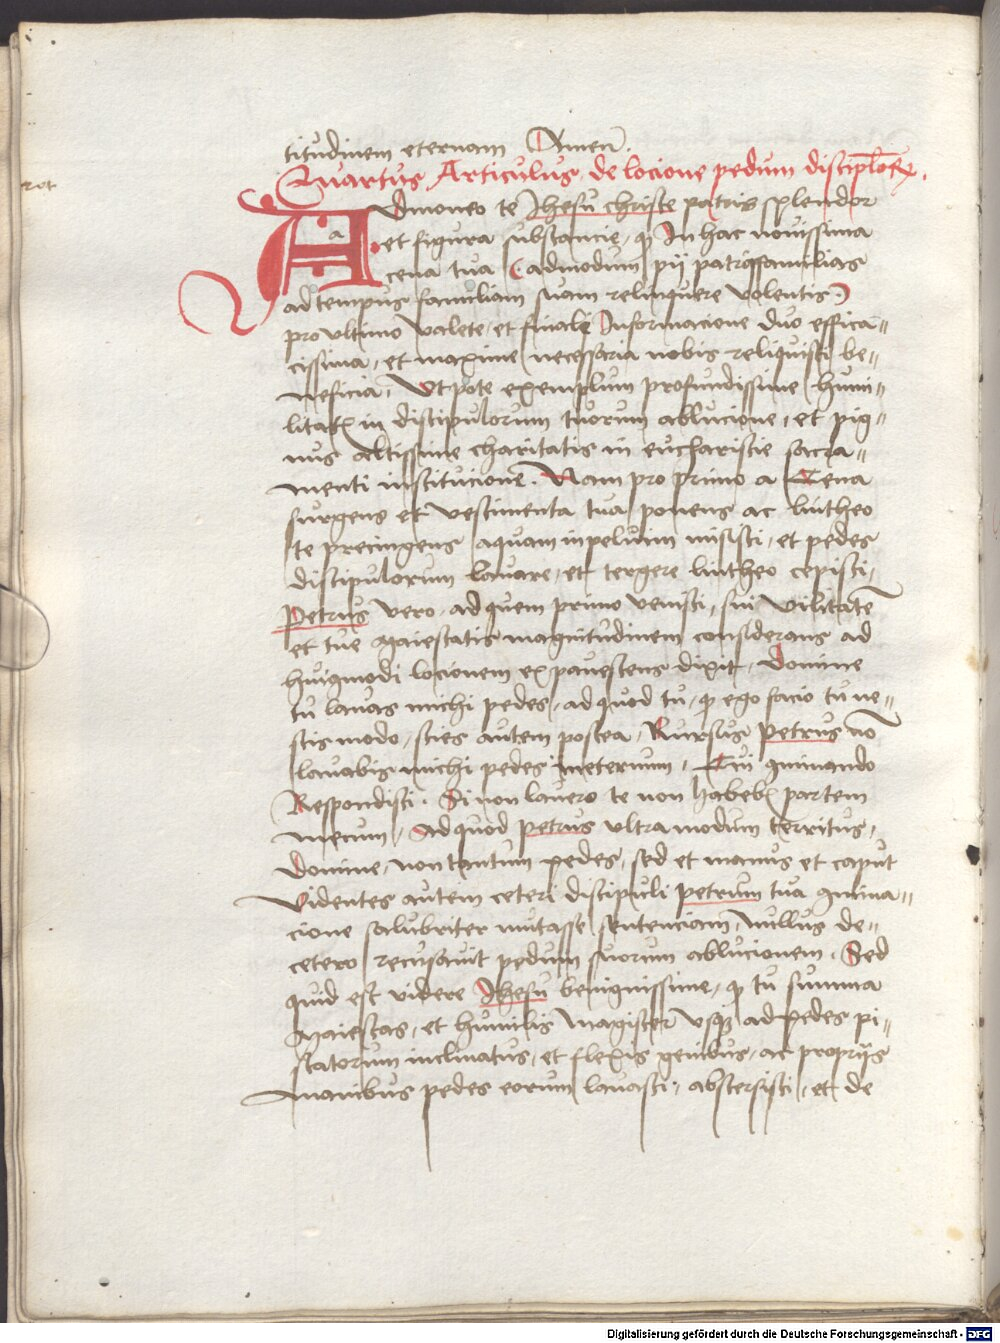 titudinem eternam Amen.
Quartus Articulus de locione pedum discipulorum.
Admoneo te Jhesu christe patris splendor
et figura substancie, quod In hac nouissima
cena tua (admodum pij patrisfamilias
ad tempus familiam suam relinquere volentis)
pro vltimo valete, et finali Informacione duo effica-
cissima, et maxime necessaria nobis reliquisti be-
neficia, Vtpote exemplum profundissime humi-
litatis in discipulorum tuorum ablucione, et pig-
nus altissime charitatis in eucharistie sacra-
menti institucione. Nam pro primo a Cena
surgens et vestimenta tua ponens ac lintheo
te precingens aquam in peluim misisti, et pedes
discipulorum lauare, et tergere lintheo cepisti,
Petrus vero, ad quem primo venisti, sui vilitatem
et tue Maiestatis magnitudinem considerans ad
huiusmodi locionem expauescens dixit, Domine
tu lauas michi pedes, ad quod tu, quod ego facio tu ne-
scis modo, scies autem postea, Rursus Petrus non
lauabis michi pedes ineternum, Cui comminando
Respondisti. Si non lauero te non habebis partem
mecum, Ad quod petrus vltra modum territus,
Domine, non tantum pedes, sed et manus et caput
Videntes autem ceteri discipuli petrum tua commina-
cione salubriter mutasse sentenciam, nullus de-
cetero recusauit pedum suorum ablucionem, Sed
quid est videre Jhesu benignissime, quod tu summa
Maiestas, et humilis Magister vsque ad pedes pi-
scatorum inclinatus, et flexis genibus, ac proprijs
manibus pedes eorum lauasti, abstersisti, et de
a
Digitalisierung gefördert durch die Deutsche Forschungsgemeinschaft - DFG